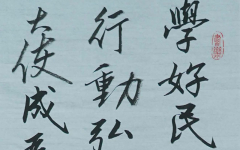 學好民
行動弘
大使成